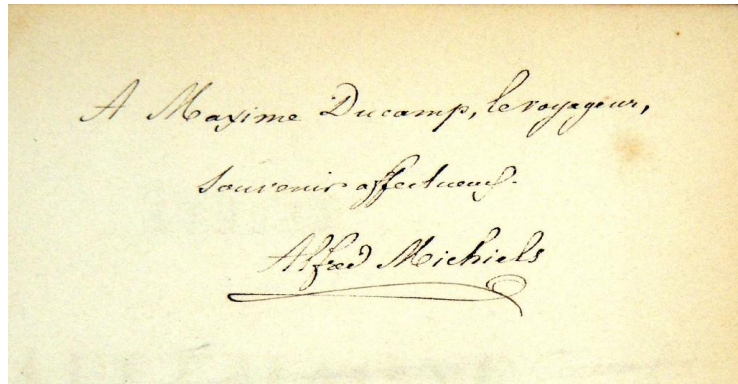 A Maxime Ducamp, le voyageur,
souvenir affectueux.
Alfred Michiels